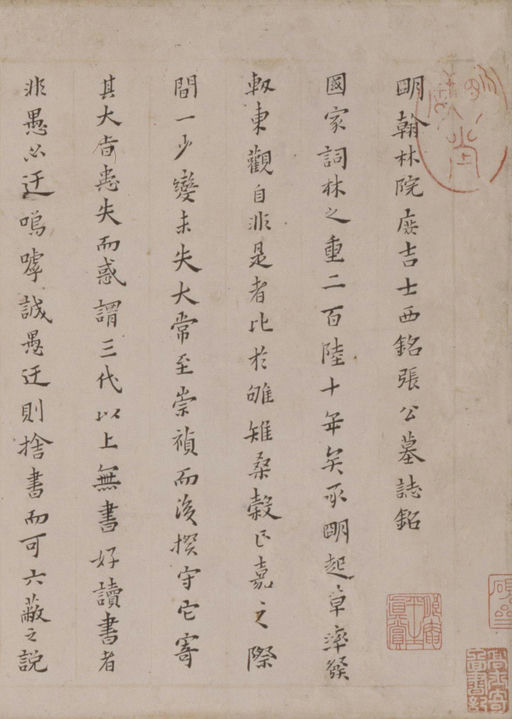 明翰林院庶吉士西銘張公墓誌銘
國家詞林之重二百陸十年矣承明起草率繇
東觀自非是者比於雊雉桑穀正嘉之際
間一少變未失大常至崇禎而後揆守它寄
其大指患失而惑謂三代以上無書好讀書者
非愚必迂嗚嘑誠愚迂則捨書而可六蔽之說